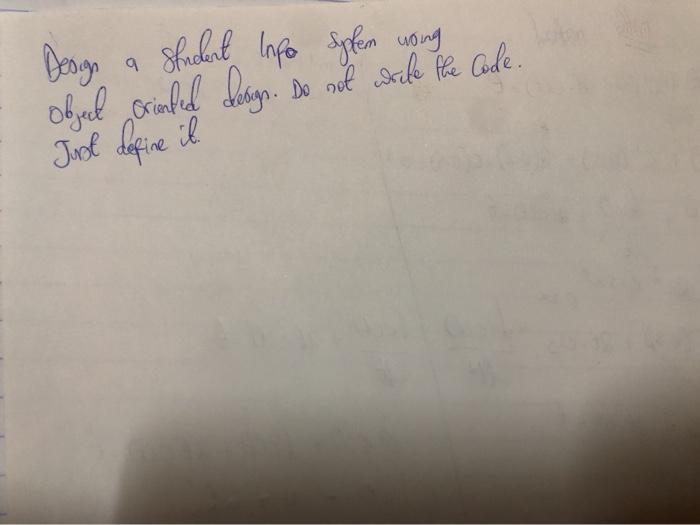 Design a Student Info System using
object oriented design. Do not write the Code.
Just define it.